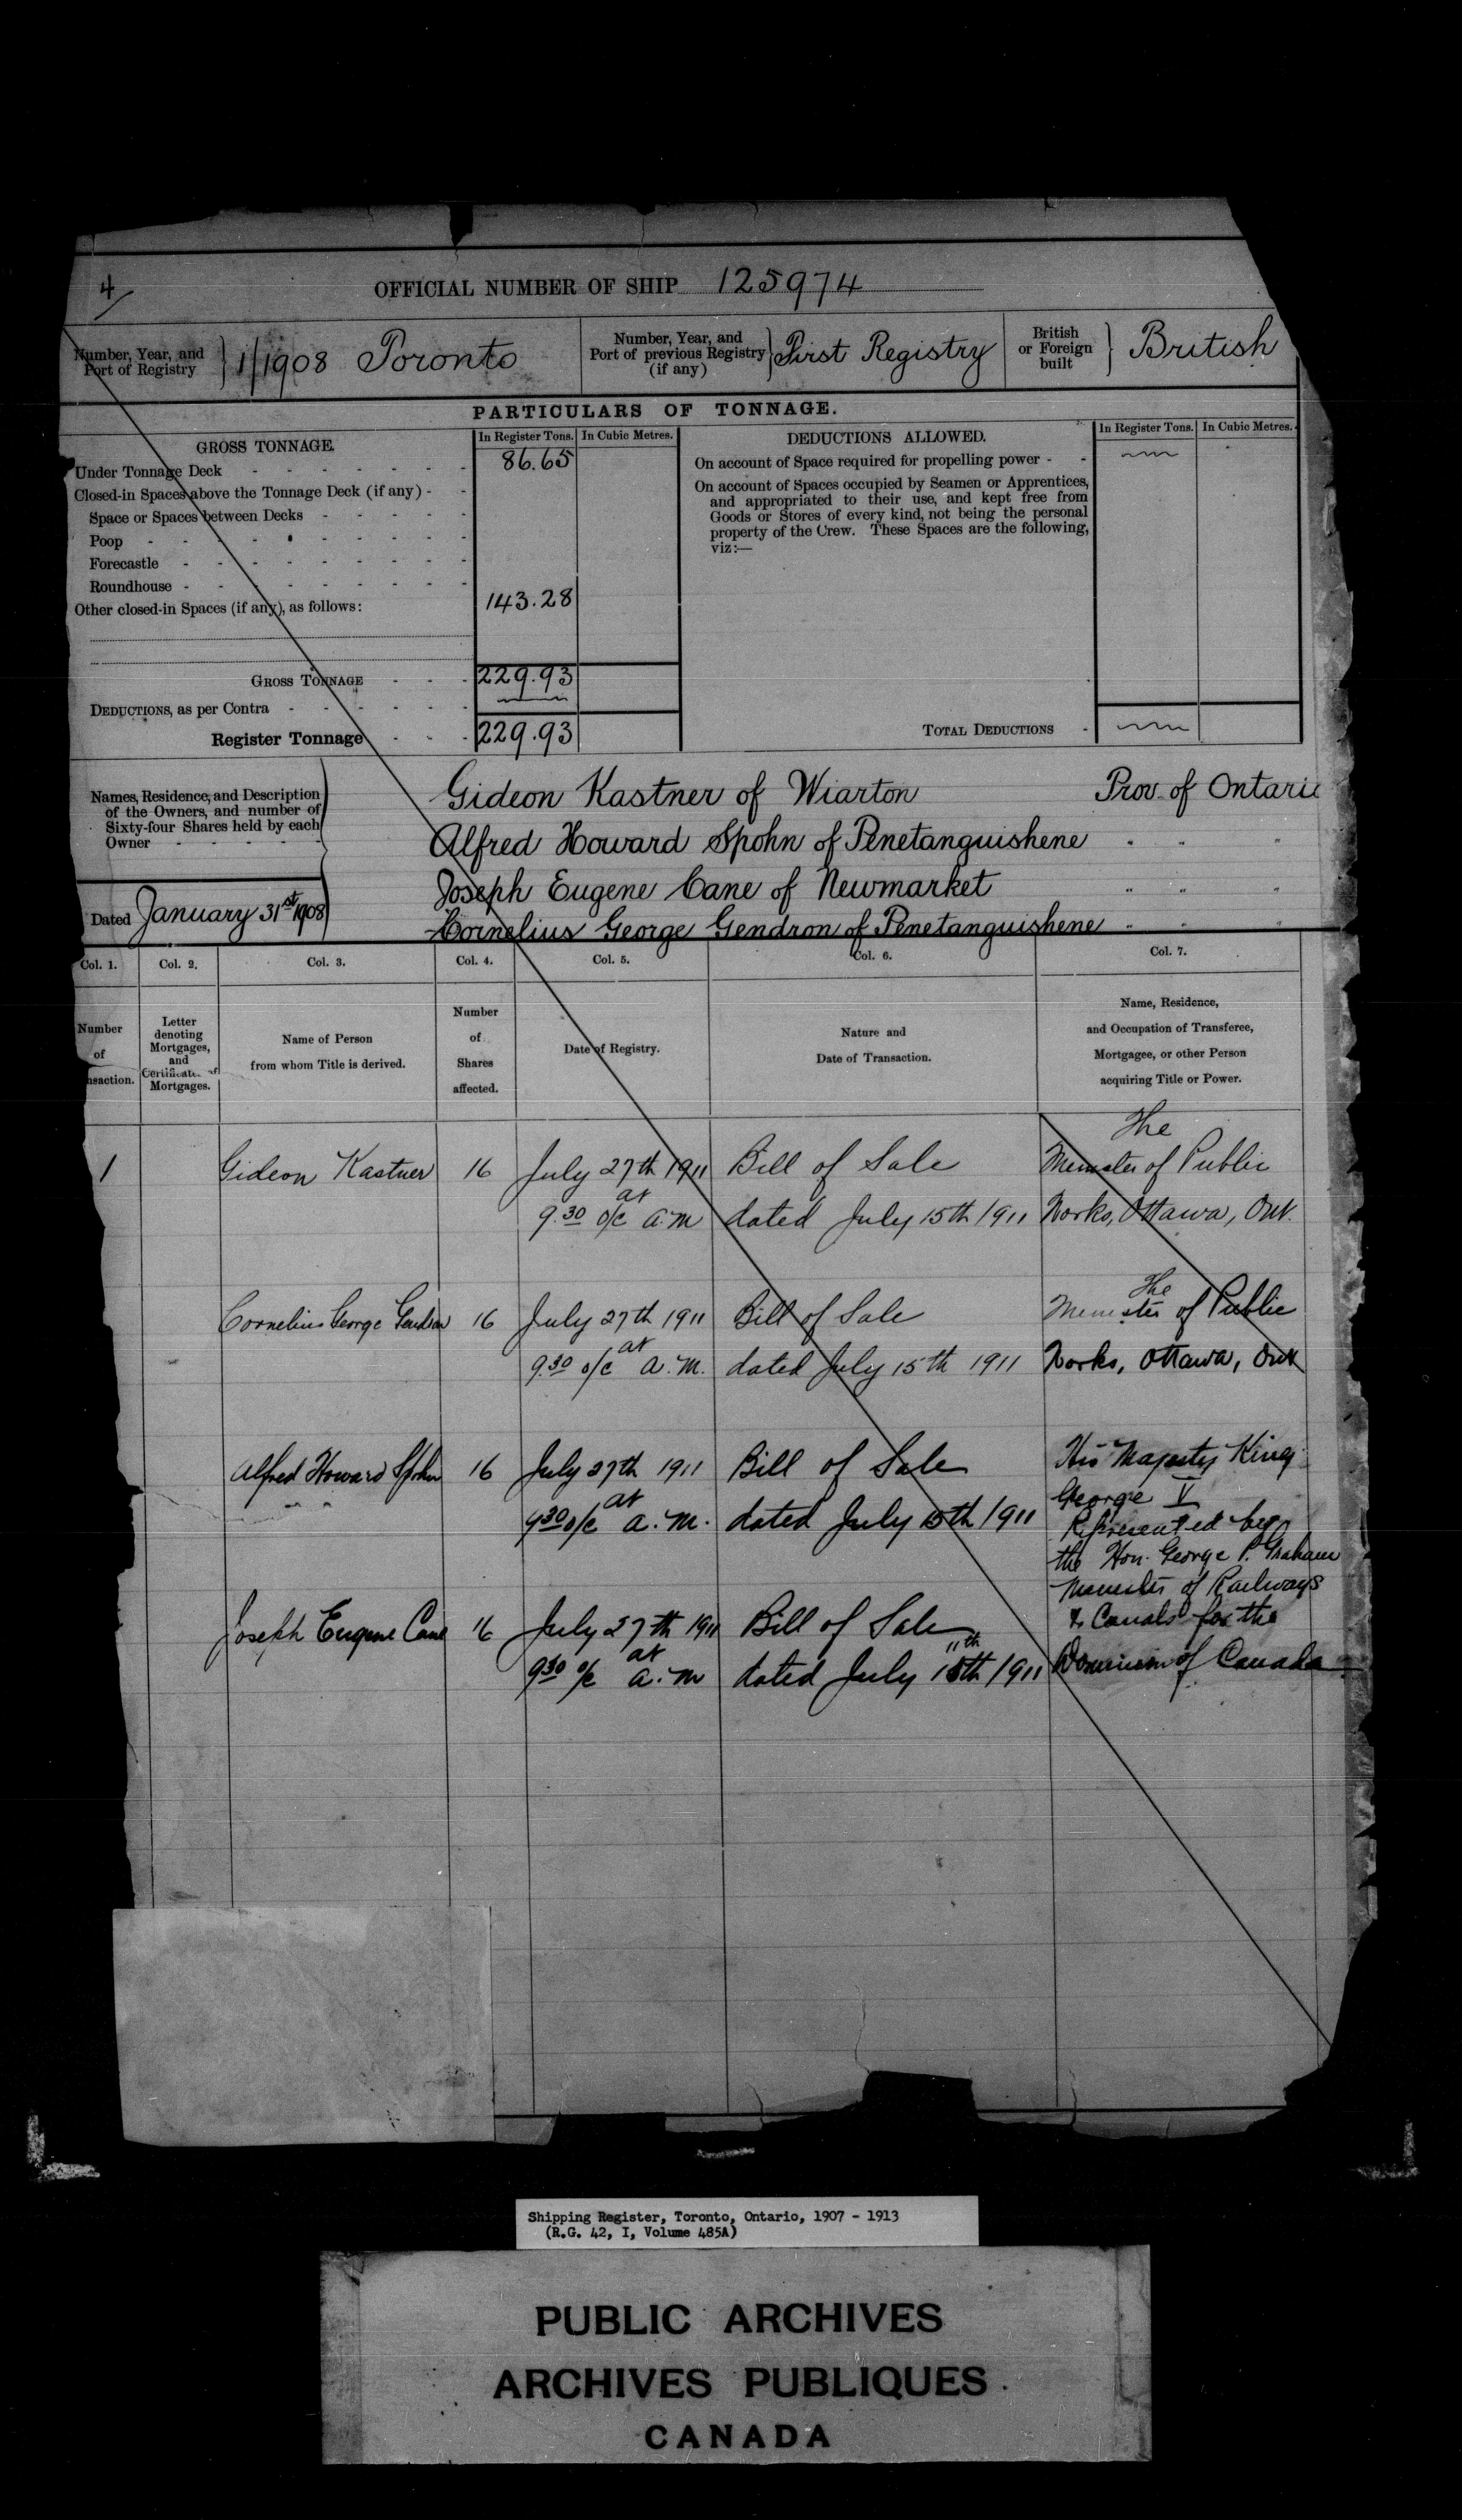 4
OFFICIAL NUMBER OF SHIP 125974
Number, Year, and Port of Registry } 1/1908 Toronto
Number, Year, and Port of previous Registry (if any) } First Registry
British or Foreign built } British
PARTICULARS OF TONNAGE.
GROSS TONNAGE. In Register Tons. In Cubic Metres.
Under Tonnage Deck - 86.65
Closed-in Spaces above the Tonnage Deck (if any) -
Space or Spaces between Decks -
Poop -
Forecastle -
Roundhouse -
Other closed-in Spaces (if any), as follows: 143.28
GROSS TONNAGE - 229.93
DEDUCTIONS, as per Contra -
Register Tonnage - 229.93
DEDUCTIONS ALLOWED. In Register Tons. In Cubic Metres.
On account of Space required for propelling power -
On account of Spaces occupied by Seamen or Apprentices,
and appropriated to their use, and kept free from
Goods or Stores of every kind, not being the personal
property of the Crew. These Spaces are the following,
viz:—
TOTAL DEDUCTIONS -
Names, Residence, and Description
of the Owners, and number of
Sixty-four Shares held by each
Owner -
Dated January 31st 1908
Gideon Kastner of Wiarton Prov. of Ontario
Alfred Howard Spohn of Penetanguishene " " "
Joseph Eugene Cane of Newmarket " " "
Cornelius George Gendron of Penetanguishene " " "
Col. 1. Col. 2. Col. 3. Col. 4. Col. 5. Col. 6. Col. 7.
Number
of
nsaction.
Letter
denoting
Mortgages,
and
Certificates of
Mortgages.
Name of Person
from whom Title is derived.
Number
of
Shares
affected.
Date of Registry.
Nature and
Date of Transaction.
Name, Residence,
and Occupation of Transferee,
Mortgagee, or other Person
acquiring Title or Power.
The
1 Gideon Kastner 16 July 27th 1911 Bill of Sale Minister of Public
at
9.30 o/c a.m dated July 15th 1911 Works, Ottawa, Ont.
The
Cornelius George Gendron 16 July 27th 1911 Bill of Sale Minister of Public
at
9.30 o/c a.m. dated July 15th 1911 Works, Ottawa, Ont
Alfred Howard Spohn 16 July 27th 1911 Bill of Sale His Majesty King
" " at George V
9.30 o/c a.m. dated July 15th 1911 Represented by
the Hon. George P. Graham
Minister of Railways
Joseph Eugene Cane 16 July 27th 1911 Bill of Sale & Canals for the
at 11th
9.30 o/c a.m dated July 15th 1911 Dominion of Canada
Shipping Register, Toronto, Ontario, 1907 - 1913
(R.G. 42, I, Volume 485A)
PUBLIC ARCHIVES
ARCHIVES PUBLIQUES
CANADA